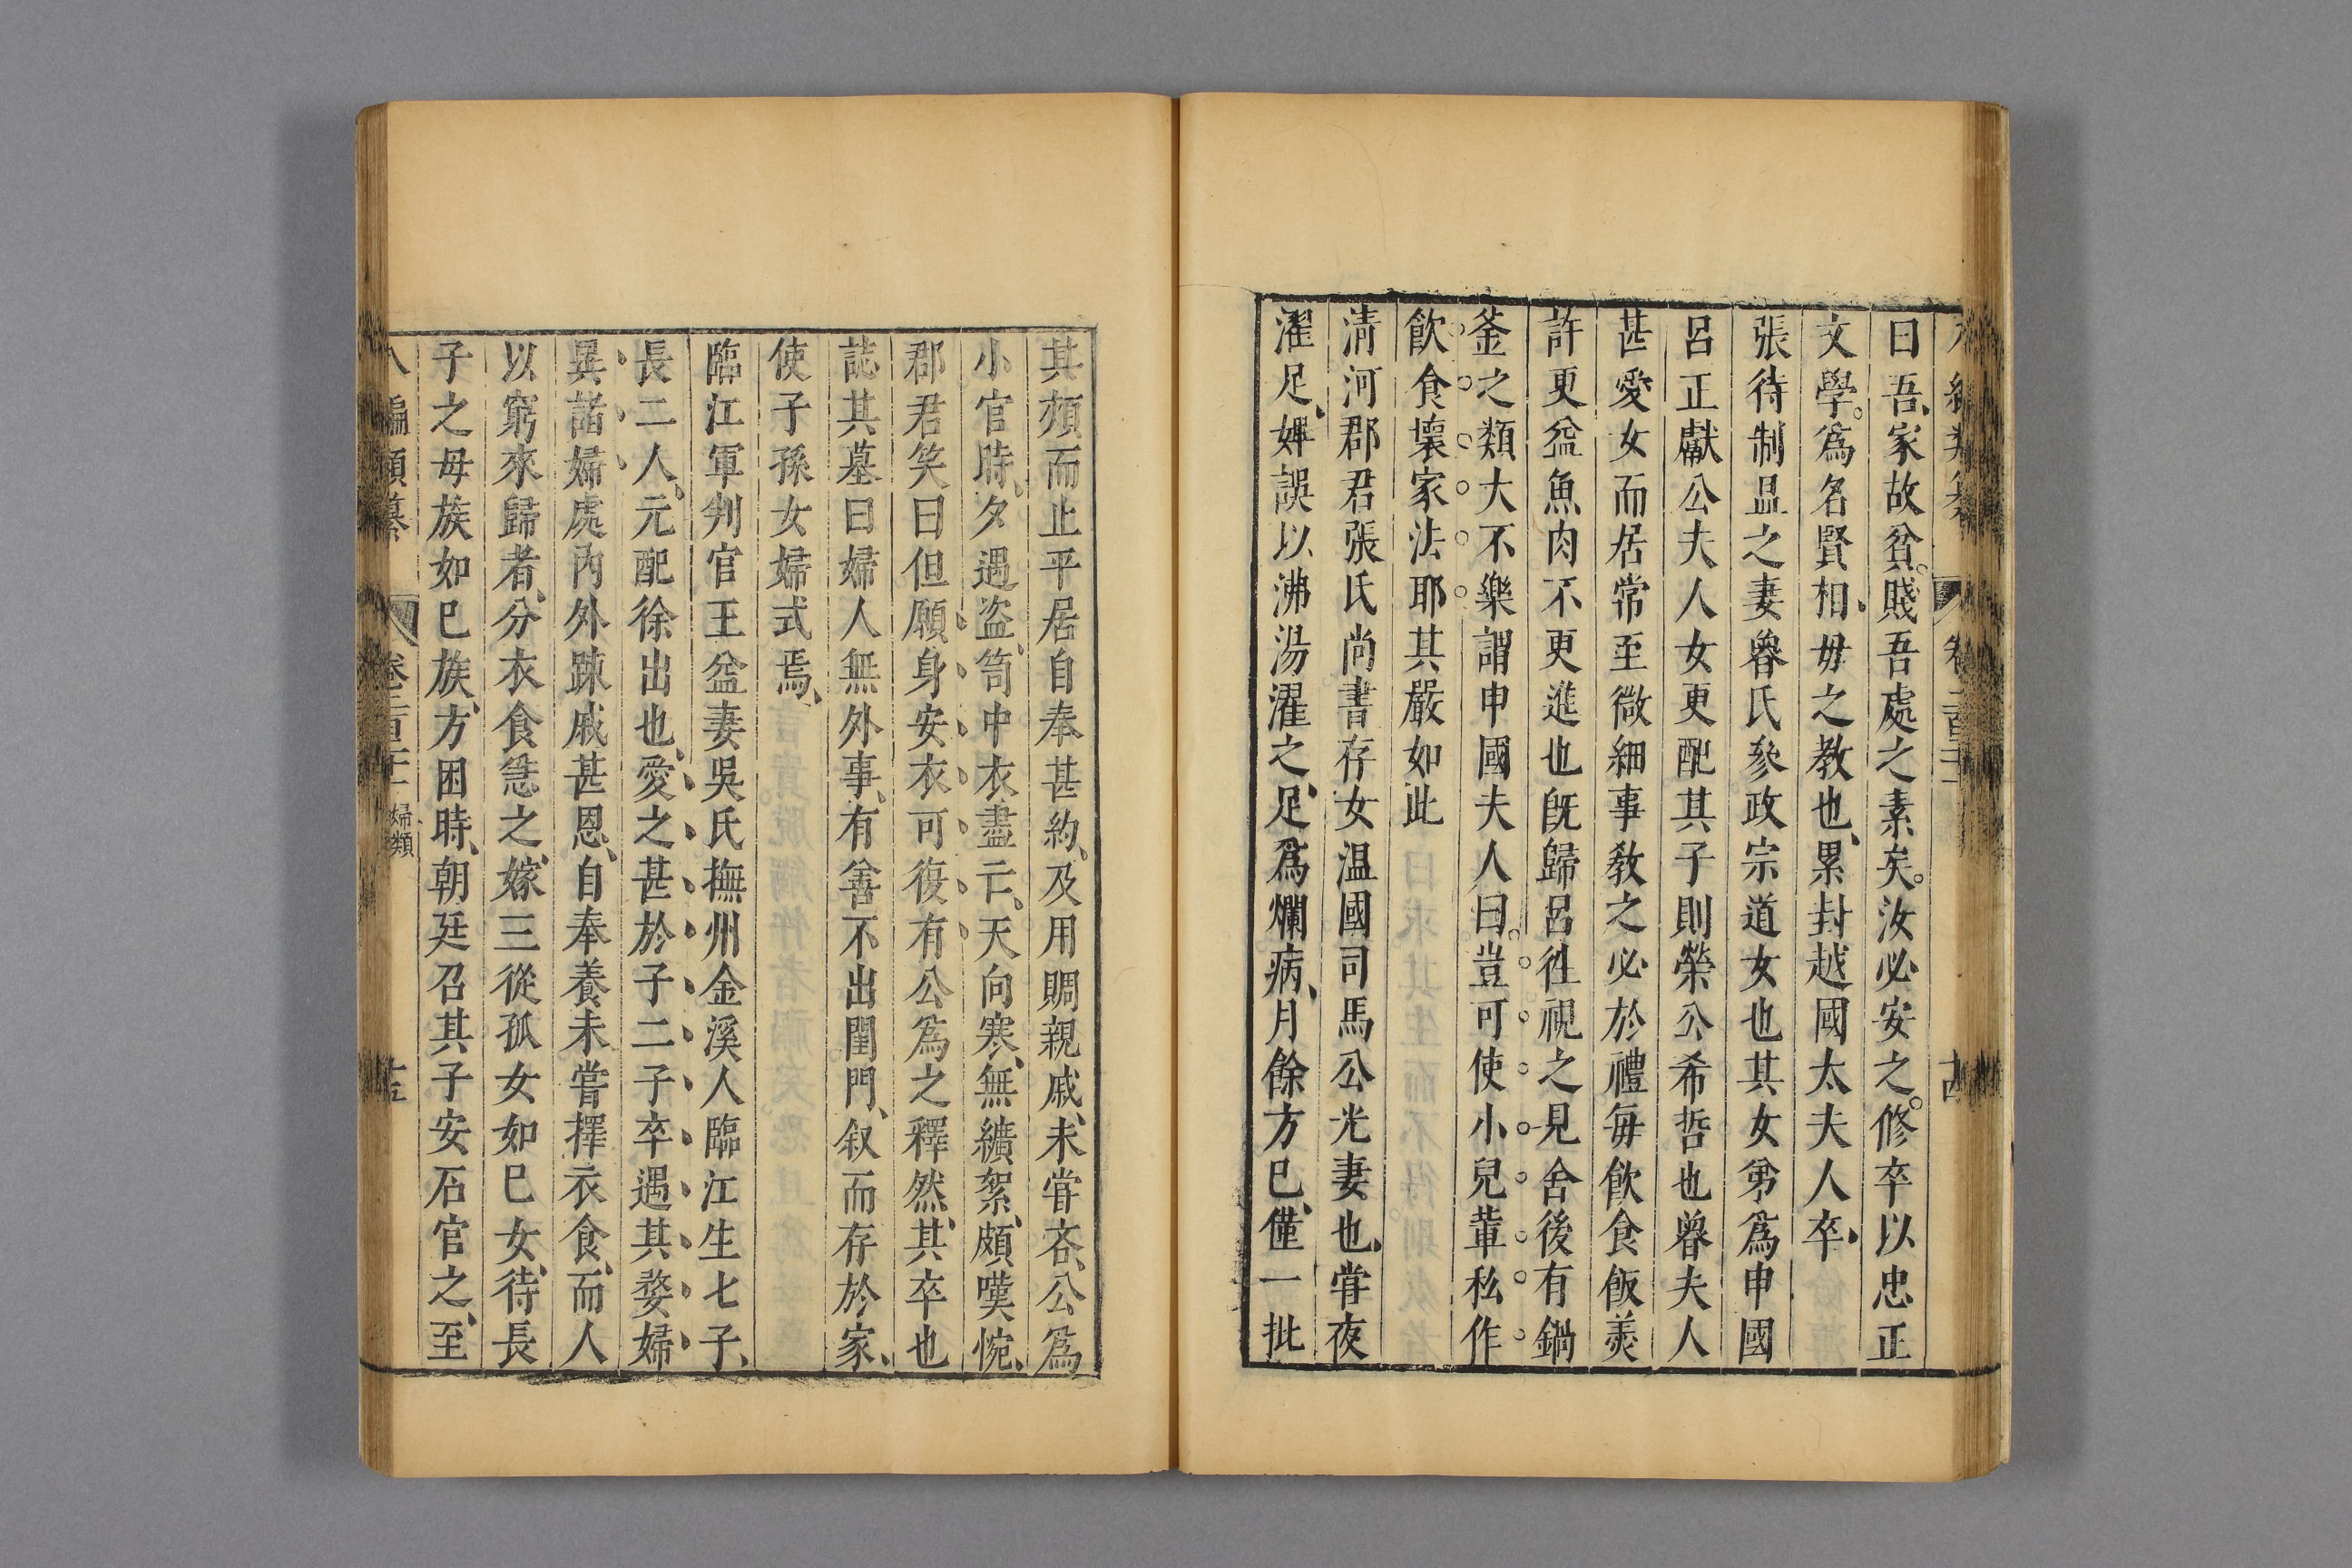 曰吾家故貧賤吾處之素矣汝必安之修卒以忠正
文學爲名賢相母之教也累封越國太夫人卒
張待制昷之妻魯氏參政宗道女也其女弟爲申國
呂正獻公夫人女更配其子則榮公希哲也魯夫人
甚愛女而居常至微細事教之必於禮每飲食飯羹
許更益魚肉不更進也旣歸呂往視之見舍後有鍋
釜之類大不樂謂申國夫人曰豈可使小兒輩私作
飲食壞家法耶其嚴如此
淸河郡君張氏尚書存女温國司馬公光妻也甞夜
濯足婢誤以沸湯濯之足爲爛病月餘方已僅一批
其頰而止平居自奉甚約及用賙親戚未甞吝公爲
小官時夕遇盜笥中衣盡亡天向寒無纊絮頗嘆惋
郡君笑曰但願身安衣可復有公爲之釋然其卒也
誌其墓曰婦人無外事有善不出閨門叙而存於家
使子孫女婦式焉
臨江軍判官王益妻吳氏撫州金溪人臨江生七子
長二人元配徐出也愛之甚於子二子卒遇其婺婦
異諸婦處內外踈戚甚恩自奉養未嘗擇衣食而人
以窮來歸者分衣食急之嫁三從孤女如已女待長
子之母族如已族方困時朝廷召其子安石官之至
八編類纂 卷二百三十一 婦類 十五